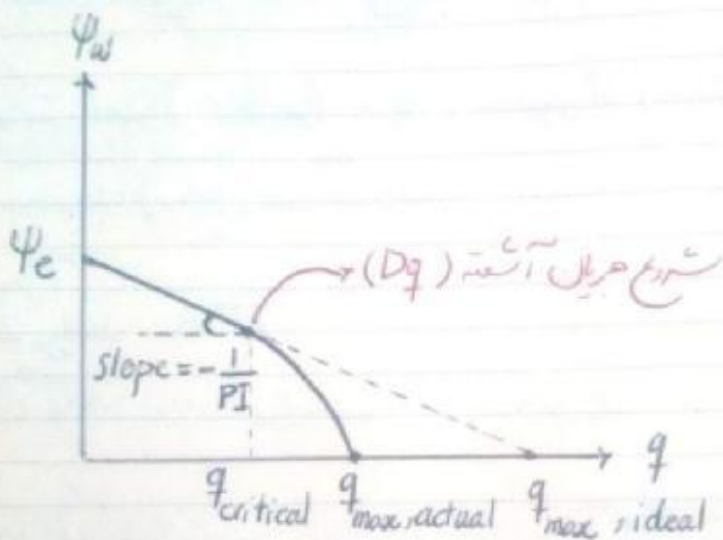 ψw
ψe
شروع جریان آشفته (Dq)
slope = -1/PI
q
q critical q max, actual q max, ideal